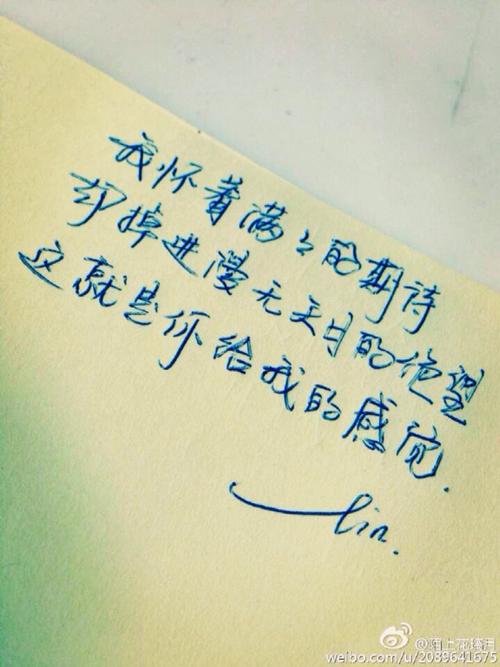 我怀着满々的期待
却掉进漫无天日的绝望
这就是你给我的感觉.
—lin.
@陌上花掩涓
weibo.com/u/2089641675